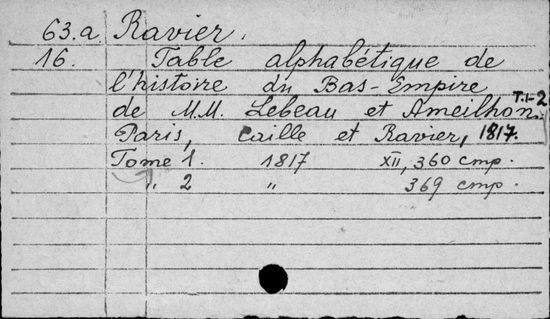 63.a. Ravier.
16. Table alphabétique de
l'histoire du Bas-Empire
de M.M. Lebeau et Ameilhon. T.1-2
Paris, Caille et Ravier, 1817.
Tome 1. 1817 XII, 360 cmp.
" 2 " 369 cmp.